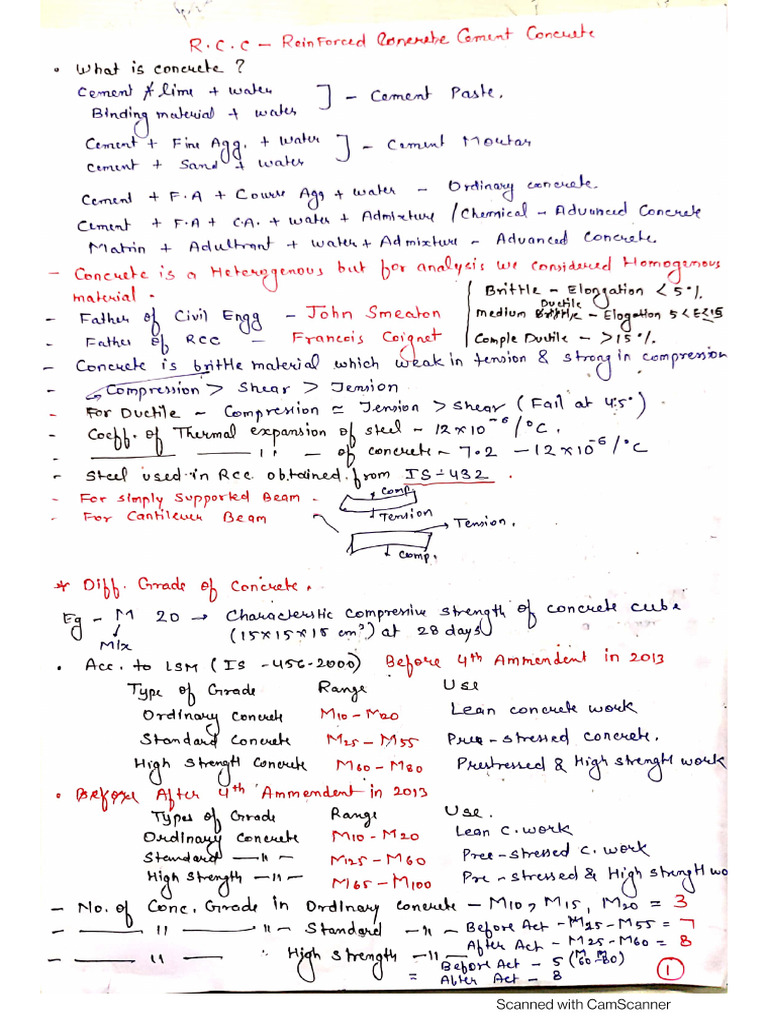 R.C.C - Reinforced Concrete Cement Concrete
• What is concrete ?
Cement / lime + water
Binding material + water ] - Cement Paste.
Cement + Fine Agg. + Water
Cement + Sand + Water ] - Cement Moutar
Cement + F.A + Course Agg + water - Ordinary concrete.
Cement + F.A + C.A. + water + Admixture / Chemical - Advanced Concrete
Matrin + Adultrant + water + Admixture - Advanced Concrete.
- Concrete is a Heterogenous but for analysis we considered Homogenous
material.
Brittle - Elongation < 5%
- Father of Civil Engg - John Smeaton
medium Ductile - Elogation 5 < E < 15
- Father of RCC - Francois Coignet
Comple Ductile - > 15 %.
- Concrete is brittle material which weak in tension & strong in compression
Compression > Shear > Tension
- For Ductile - Compression ≃ Tension > Shear (Fail at 45°)
- Coeff. of Thermal expansion of steel - 12 x 10⁻⁶ / °C.
- —— 〃 — of concrete - 7.2 - 12 x 10⁻⁶ / °C
- Steel used in Rcc obtained from IS-432.
- For simply Supported Beam -
Comp.
Tension
- For Cantilever Beam
Tension.
Comp.
* Diff. Grade of Concrete.
Eg - M 20 → Characterstic compressive strength of concrete cube
(15x15x15 cm³) at 28 days
Mix
• Acc. to LSM (IS -456-2000) Before 4th Ammendent in 2013
Type of Grade Range Use
Ordinary Concrete M10 - M20 Lean concrete work
Standard Concrete M25 - M55 Pree-stressed concrete.
High Strength Concrete M60 - M80 Prestressed & High strenght work
• Before After 4th Ammendent in 2013
Types of Grade Range Use.
Ordinary Concrete M10 - M20 Lean C. work
Standard —〃— M25 - M60 Pree-stressed C. work
High Strength —〃— M65 - M100 Pre-stressed & High strenght wo
- No. of Conc. Grade in Ordinary concrete - M10, M15, M20 = 3
- —— 〃 —— 〃 - Standard —〃— Before Act - M25 - M55 = 7
After Act - M25 - M60 = 8
- —— 〃 —— High Strength —〃— Before Act - 5 (M60-M80)
= After Act - 8
1
Scanned with CamScanner